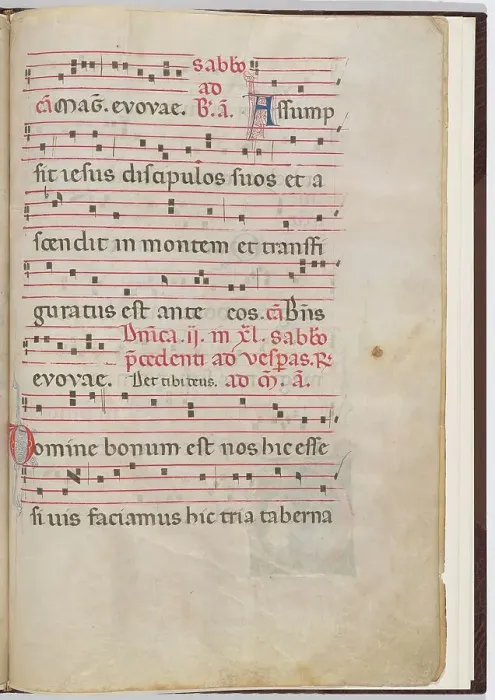 sabbo
ad
cā Maḡ. evovae. B. ā. Assump
sit iesus discipulos suos et a
scendit in montem et transfi
guratus est ante eos. cā Bn̄s
Dn̄ica. ij. in xl. sabbo
p̄cedenti ad vesp̄as. R.
evovae. Det tibi deus. ad m̄. ā.
Domine bonum est nos hic esse
si uis faciamus hic tria taberna